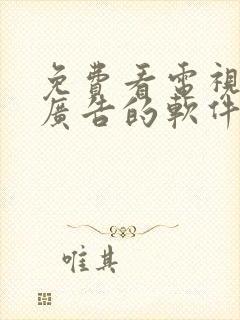 免費看電視
廣告的軟件
唯其